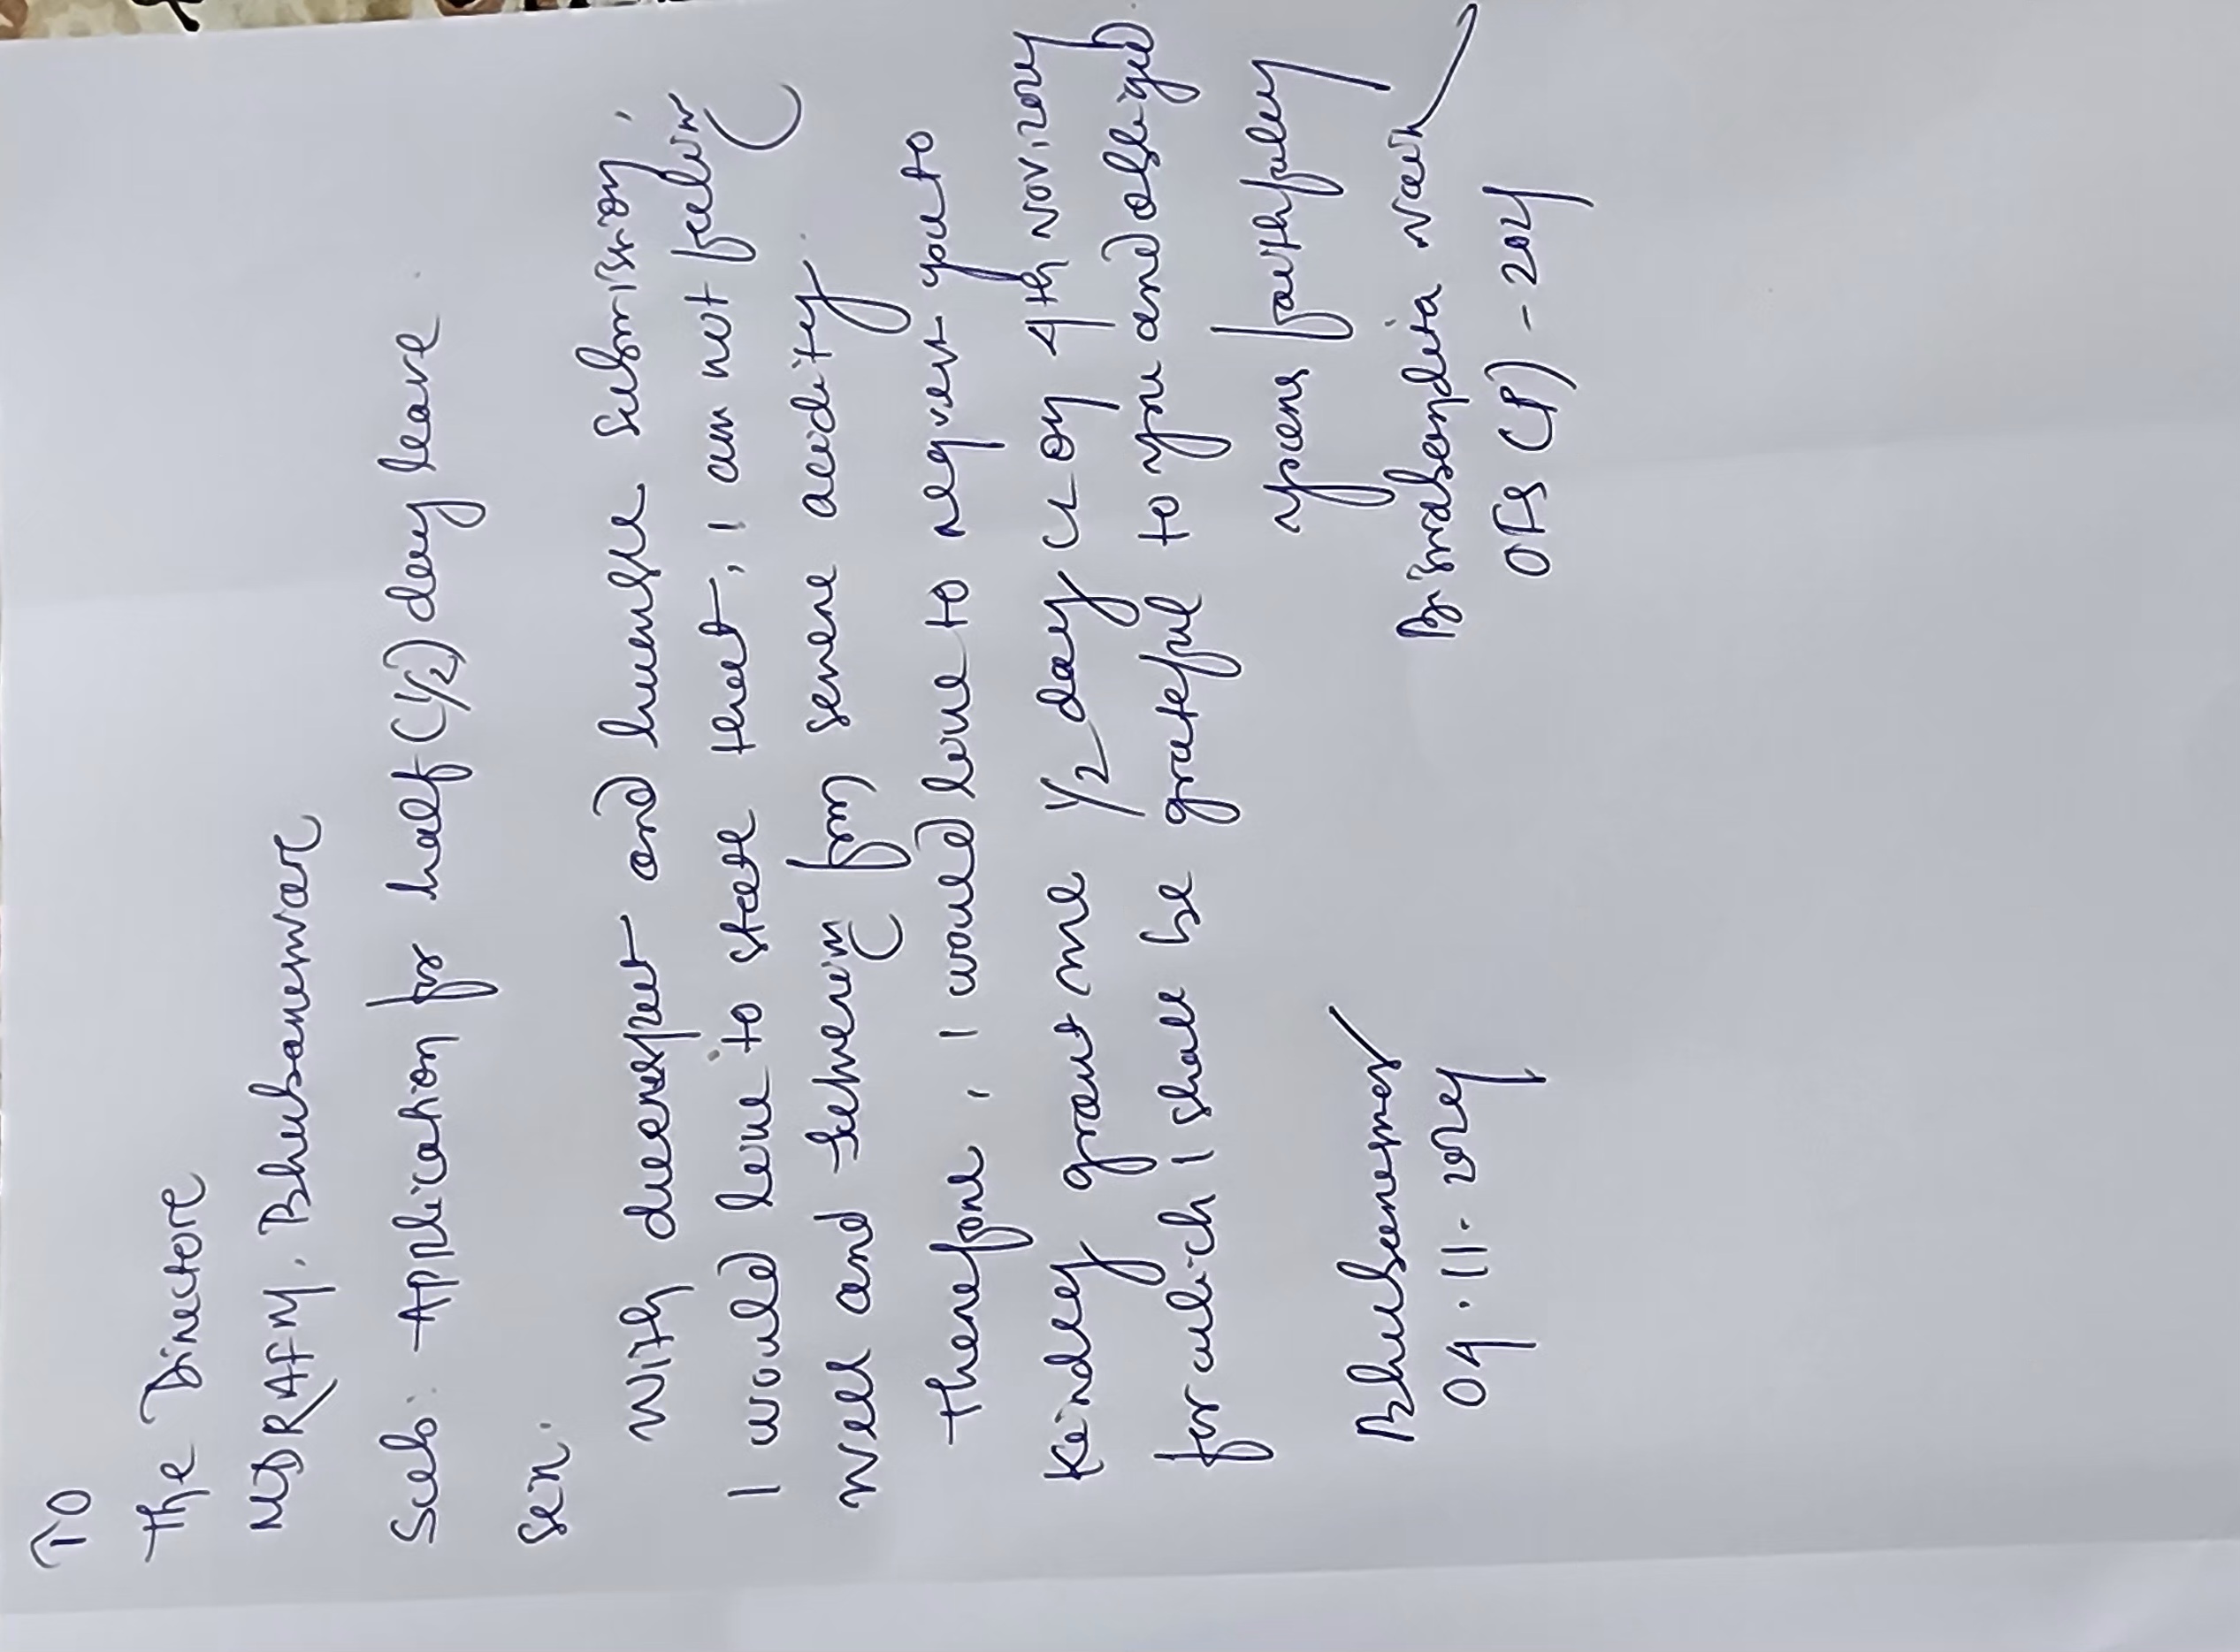 To
The Directore
MDRAFM, Bhubaneswar
Sub: Application for half (1/2) day leave
Ser.
With due respect and humble submission,
I would love to state that, I am not feeling
well and suffering from severe acidity.
Therefore, I would love to request you to
kindly grant me 1/2 day CL on 4th Nov, 2024
for which I shall be grateful to you and obliged
yours faithfully
Bhubaneswar
04.11.2024
OFS (P) - 2024